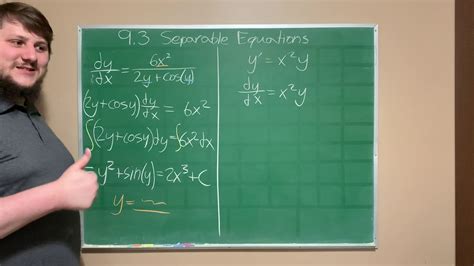 9.3 Separable Equations
dy/dx = 6x²/(2y + cos(y))
(2y+cosy) dy/dx = 6x²
∫(2y+cosy)dy = ∫6x²dx
= y² + sin(y) = 2x³ + C
y =
y' = x²y
dy/dx = x²y